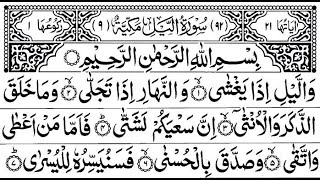 اٰيَاتُهَا ٢١ (٩٢) سُوْرَةُ الَّيْلِ مَكِّيَّةٌ (٩) رُكُوْعُهَا ١
بِسْمِ اللّٰهِ الرَّحْمٰنِ الرَّحِيْمِ
وَالَّيْلِ اِذَا يَغْشٰى ۙ۝١ وَالنَّهَارِ اِذَا تَجَلّٰى ۙ۝٢ وَمَا خَلَقَ
الذَّكَرَ وَالْاُنْثٰٓى ۙ۝٣ اِنَّ سَعْيَكُمْ لَشَتّٰى ۝٤ فَاَمَّا مَنْ اَعْطٰى
وَاتَّقٰى ۙ۝٥ وَصَدَّقَ بِالْحُسْنٰى ۙ۝٦ فَسَنُيَسِّرُهٗ لِلْيُسْرٰى